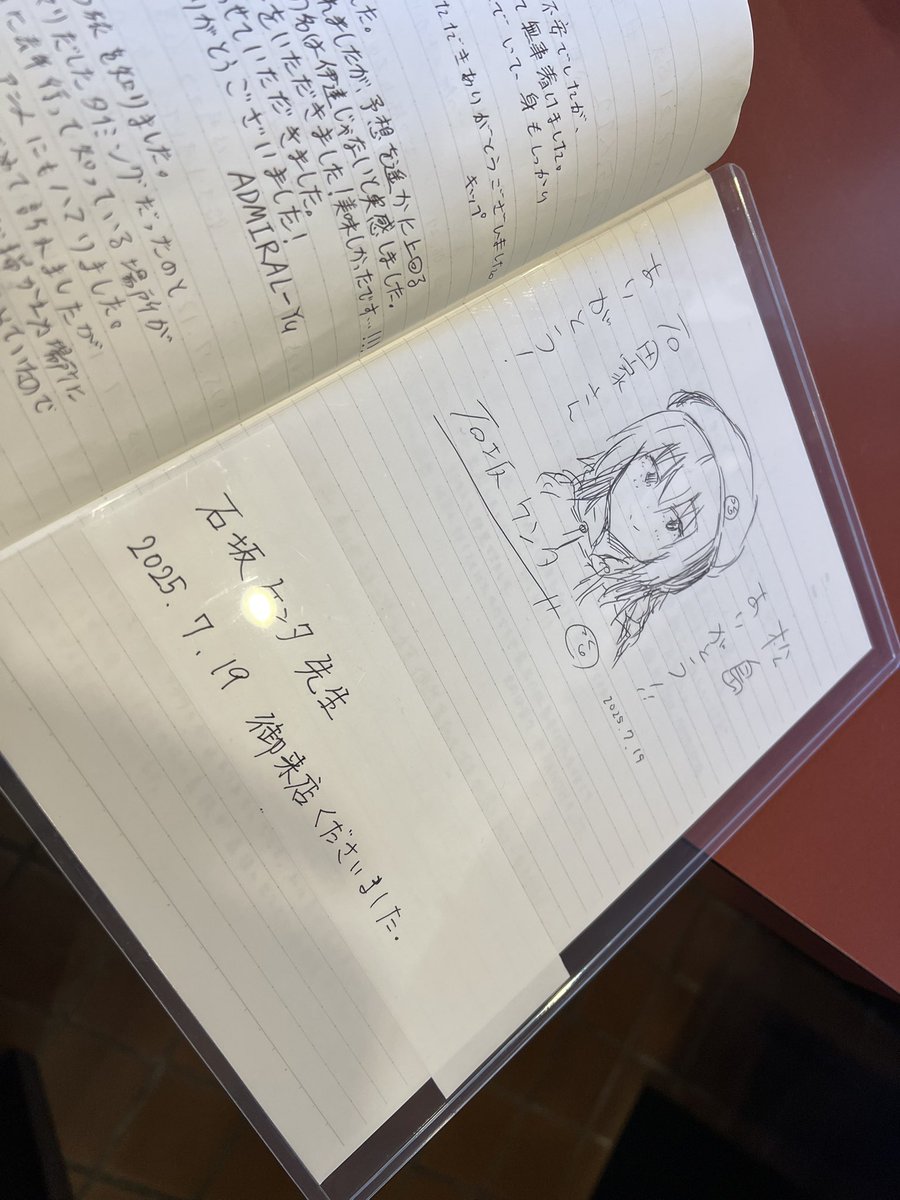 不安でしたが、
て無事着けました。
でいて、身もしっかり
ただきありがとうございました。
キップ
した。
れましたが、予想を遥かに上回る
つ名は伊達じゃないと実感しました。
をいただきました!美味しかったです…!!!
せていただきました。
りがとうございました!
ADMIRAL-Yu
を知りました。
マリだしたタイミングだったのと
って知っている場所が
アニメにもハマりました。
ましたが
場所に
ていたので
石田家さん
ありがとう!
松島
ありがとう!!
石坂ケンタ
2025.7.19
石坂ケンタ先生
2025.7.19 御来店くださいました.